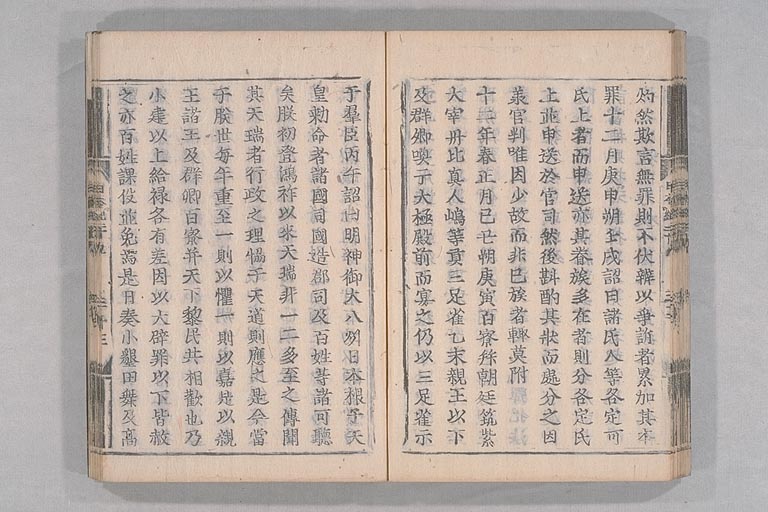 灼然欺言無罪則不伏辨以爭訴者累加其本
罪十二月庚申朔壬戌詔曰諸氏人等各定可
氏上者而申送亦其眷族多在者則分各定氏
上並申送於官司然後斟酌其狀而處分之因
承官判唯因少故而非己族者輙莫附
十二年春正月己丑朔庚寅百寮拜朝廷筑紫
大宰丹比真人嶋等貢三足雀乙未親王以下
及群卿喚于大極殿前而宴之仍以三足雀示
于羣臣丙午詔曰明神御大八洲日本根子天
皇勅命者諸國司國造郡司及百姓等諸可聽
矣朕初登鴻祚以來天瑞非一二多至之傳聞
其天瑞者行政之理惬于天道則應之是今當
于朕世每年重至一則以懼一則以嘉是以親
王諸王及群卿百寮并天下黎民共相歡也乃
小建以上給祿各有差因以大辟罪以下皆赦
之亦百姓課役並免焉是日奏小墾田儛及高